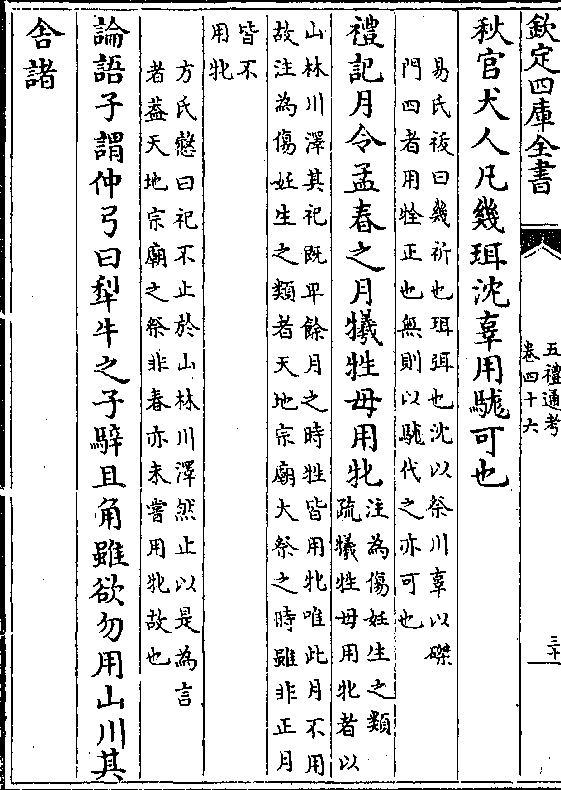 欽定四庫全書
五禮通考
卷四十六
三十
秋官犬人凡幾珥沈辜用駹可也
易氏祓曰幾祈也珥弭也沈以祭川辜以磔
門四者用牷正也無則以駹代之亦可也
禮記月令孟春之月犧牲毋用牝
注為傷妊生之類
疏犧牲毋用牝者以
山林川澤其祀既卑餘月之時牲皆用牝唯此月不用
故注為傷妊生之類者天地宗廟大祭之時雖非正月
皆不
用牝
方氏慤曰祀不止於山林川澤然止以是為言
者蓋天地宗廟之祭非春亦未嘗用牝故也
論語子謂仲弓曰犁牛之子騂且角雖欲勿用山川其
舍諸